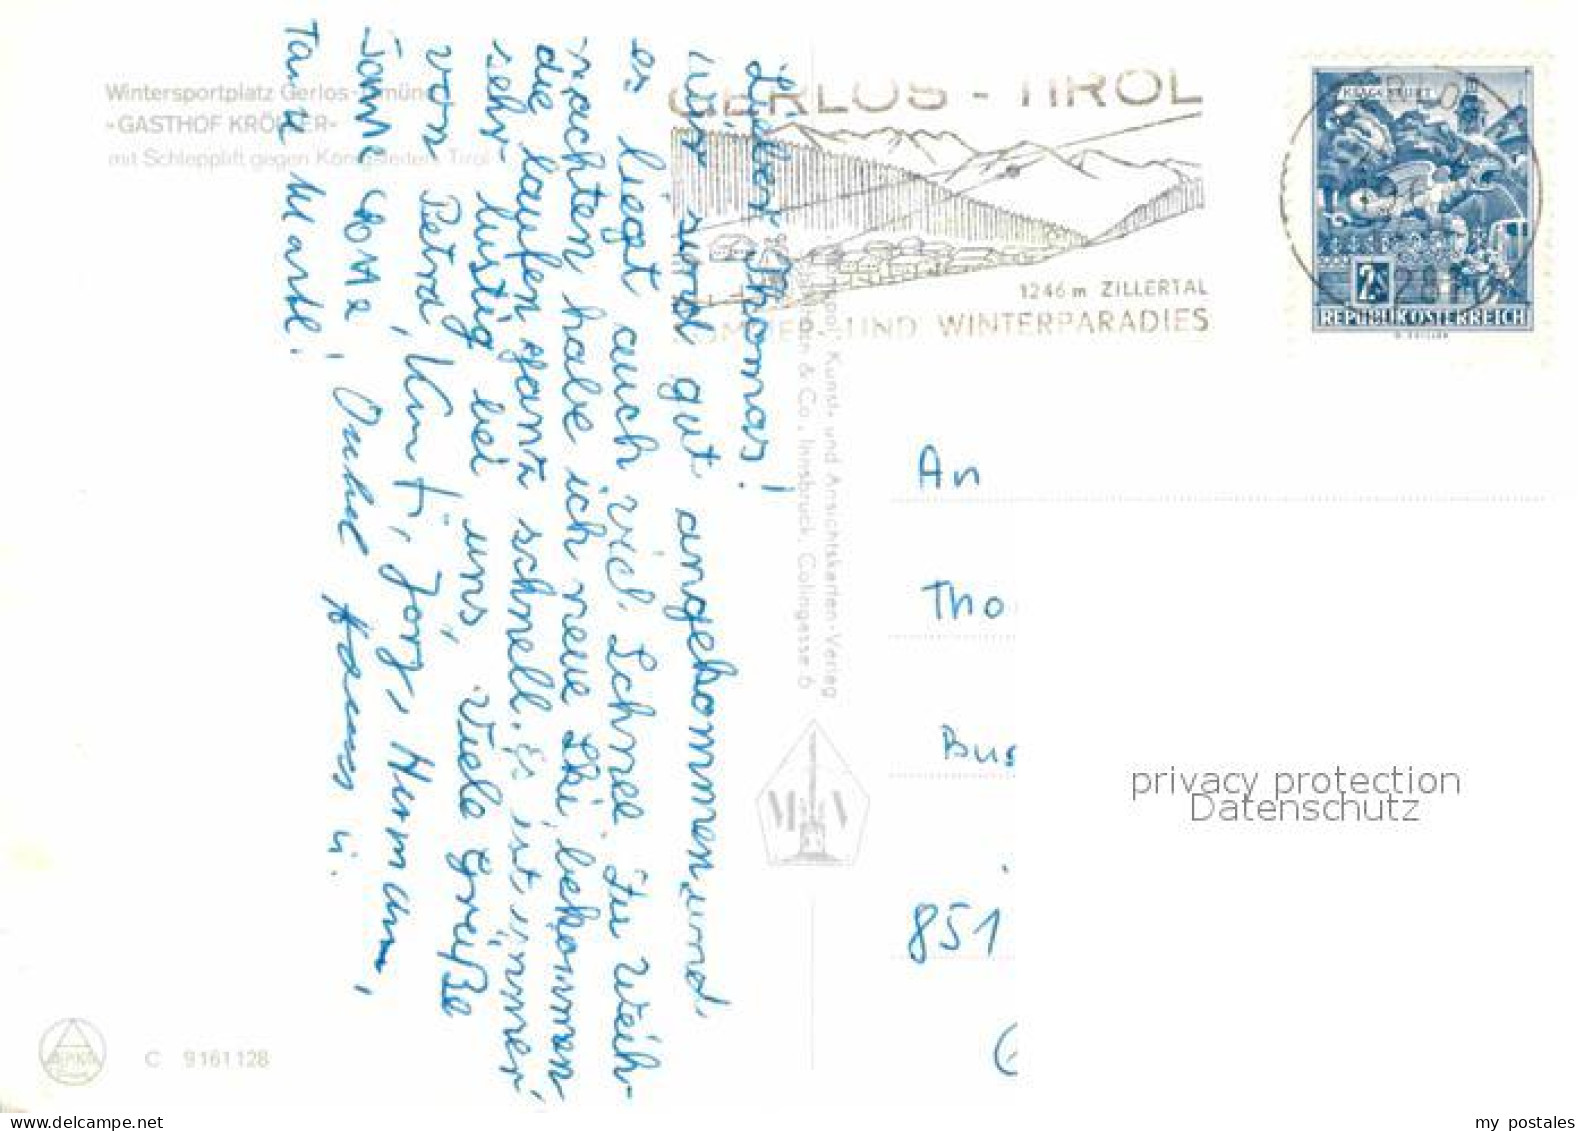 Wintersportplatz Gerlos-Gmünd
-GASTHOF KRÖLLER-
mit Schlepplift gegen Königsleiten, Tirol
GERLOS - TIROL
1246 m ZILLERTAL
SOMMER- UND WINTERPARADIES
KLAGENFURT
2S
REPUBLIK ÖSTERREICH
Lieber Thomas!
Wir sind gut angekommen, und
es liegt auch viel Schnee. Zu Weih-
nachten habe ich neue Ski bekommen
die laufen ganz schnell. Es ist immer
sehr lustig bei uns. Viele Grüße
von Petra, Kurt, Jörg, Hermann,
Onkel Hannes u.
Tante Martl!
Kunst- und Ansichtskarten-Verlag
& Co., Innsbruck, Colingasse 6
An
Tho
Bus
851
privacy protection
Datenschutz
C 9161128
my postales